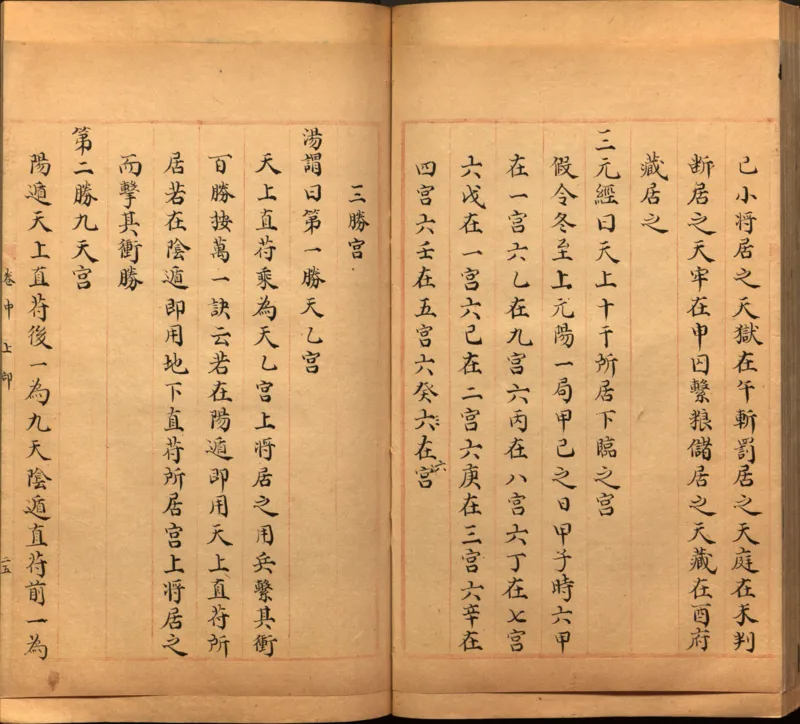 巳小将居之天獄在午斬罰居之天庭在未判
断居之天牢在申囚繫粮儲居之天藏在酉府
藏居之
三元經曰天上十干所居下臨之宮
假令冬至上元陽一局甲己之日甲子時六甲
在一宮六乙在九宮六丙在八宮六丁在七宮
六戊在一宮六己在二宮六庚在三宮六辛在
四宮六壬在五宮六癸六在宮
六
三勝宮
湯謂曰第一勝天乙宮
天上直苻乘為天乙宮上將居之用兵繫其衝
百勝按萬一訣云若在陽遁即用天上直苻所
居若在陰遁即用地下直苻所居宮上將居之
而擊其衝勝
第二勝九天宮
陽遁天上直苻後一為九天陰遁直苻前一為
卷中上
二五